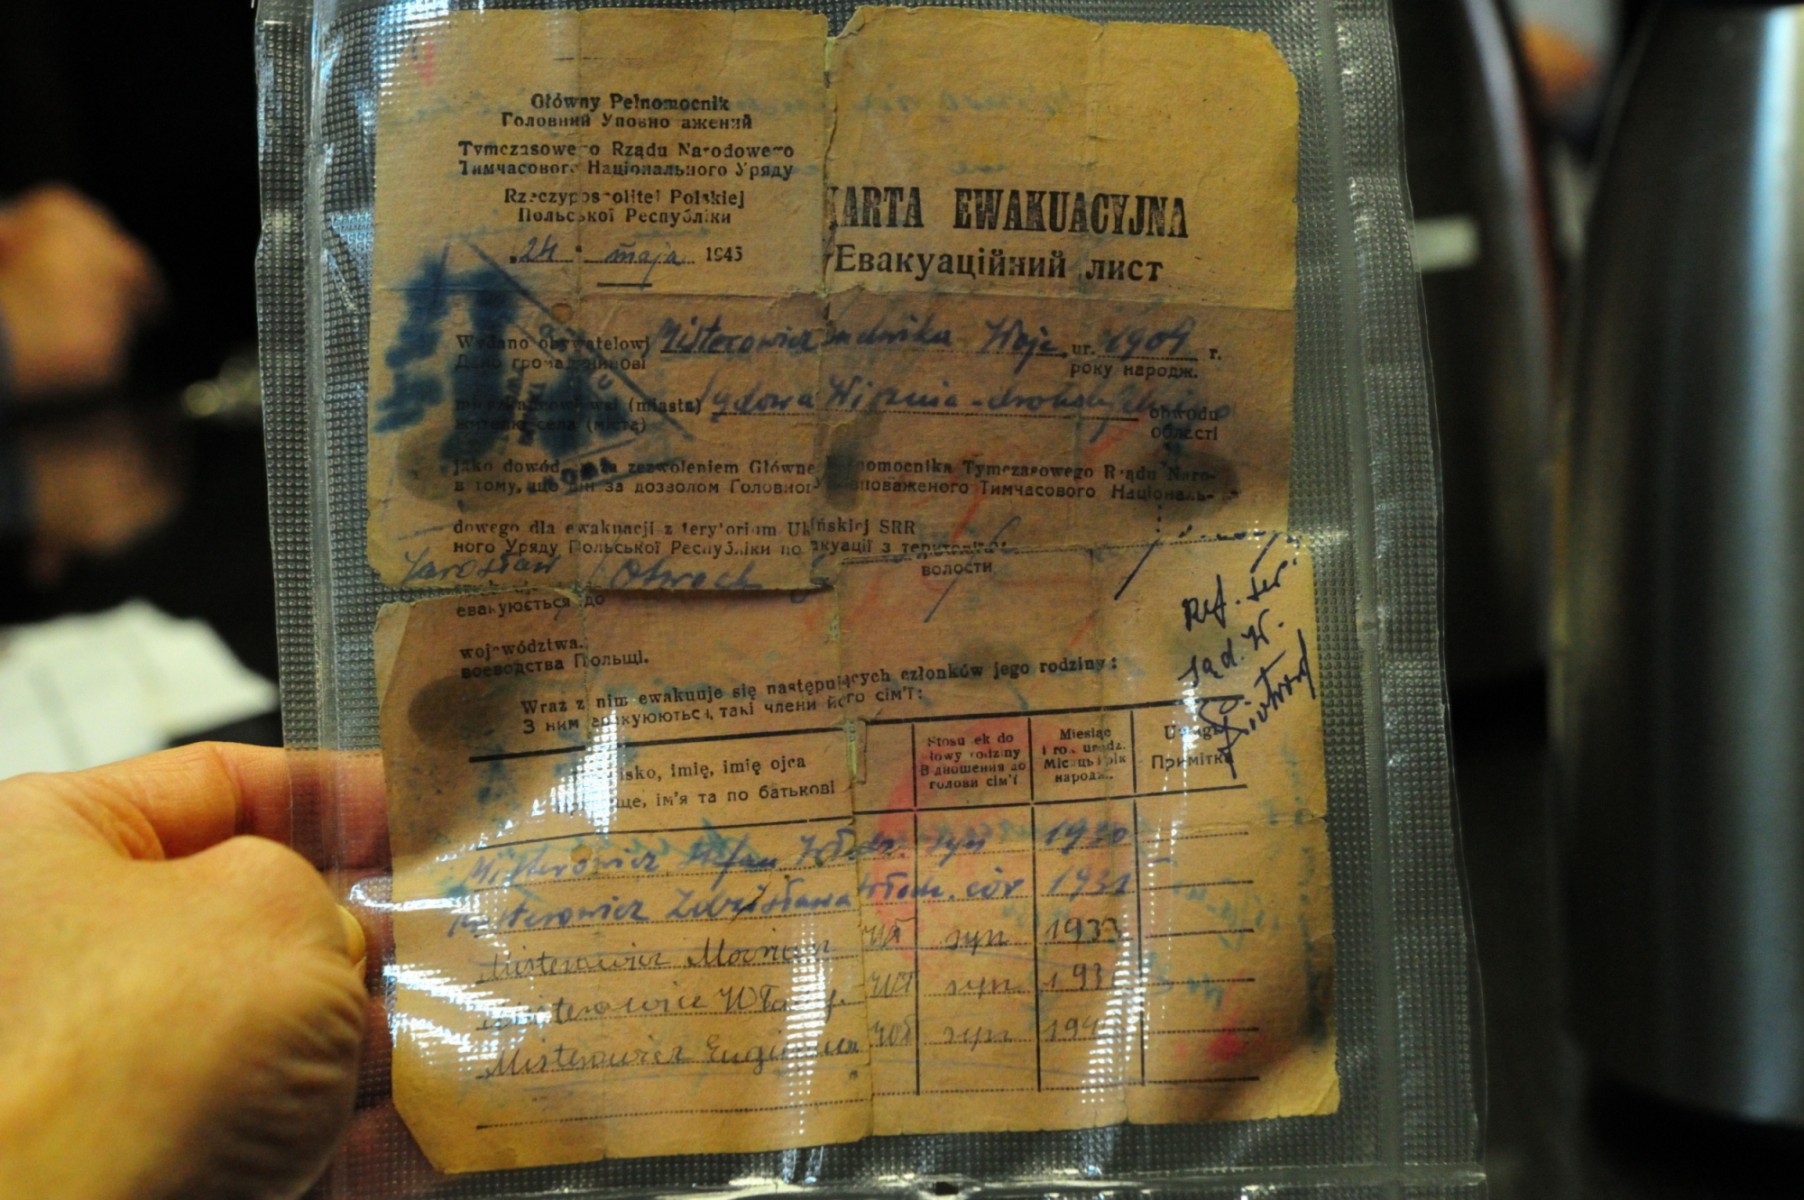 Główny Pełnomocnik
Головний Уповно ажений
Tymczasowego Rządu Narodowego
Тимчасового Національного Уряду
Rzeczypospolitej Polskiej
Польської Республіки
"24" maja 1945
KARTA EWAKUACYJNA
Евакуаційний лист
Wydano obywatelowi Misterowicz Ludwika Wojc. ur. 1909 r.
Дано громадянинові року народж.
(miasta) Sądowa Wisznia - drohobyckiego obwodu
жителю села (міста) області
jako dowód, za zezwoleniem Główne Pełnomocnika Tymczasowego Rządu Naro-
в тому, що він за дозволом Головного Уповноваженого Тимчасового Національ-
dowego dla ewakuacji z terytorium Ukraińskiej SRR
ного Уряду Польської Республіки по евакуації з територій
волости
Jarosław
евакуюється до
województwa.
воеводства Польщі.
Ref. ter.
Sąd. W.
Wraz z nim ewakuuje się następujących członków jego rodziny:
З ним евакуюються, такі члени його сім'ї:
isko, imię, imię ojca
ще, ім'я та по батькові
Stosunek do
głowy rodziny
Відношення до
голови сім'ї
Miesiąc
i rok urodz.
Місяць і рік
народж.
Uwagi
Примітка
Misterowicz Stefan Włodz. syn 1930
Misterowicz Zdzisława Włodz. cór 1931
Misterowicz syn 1933
Misterowicz syn 193
Misterowicz Eugeniusz syn 194